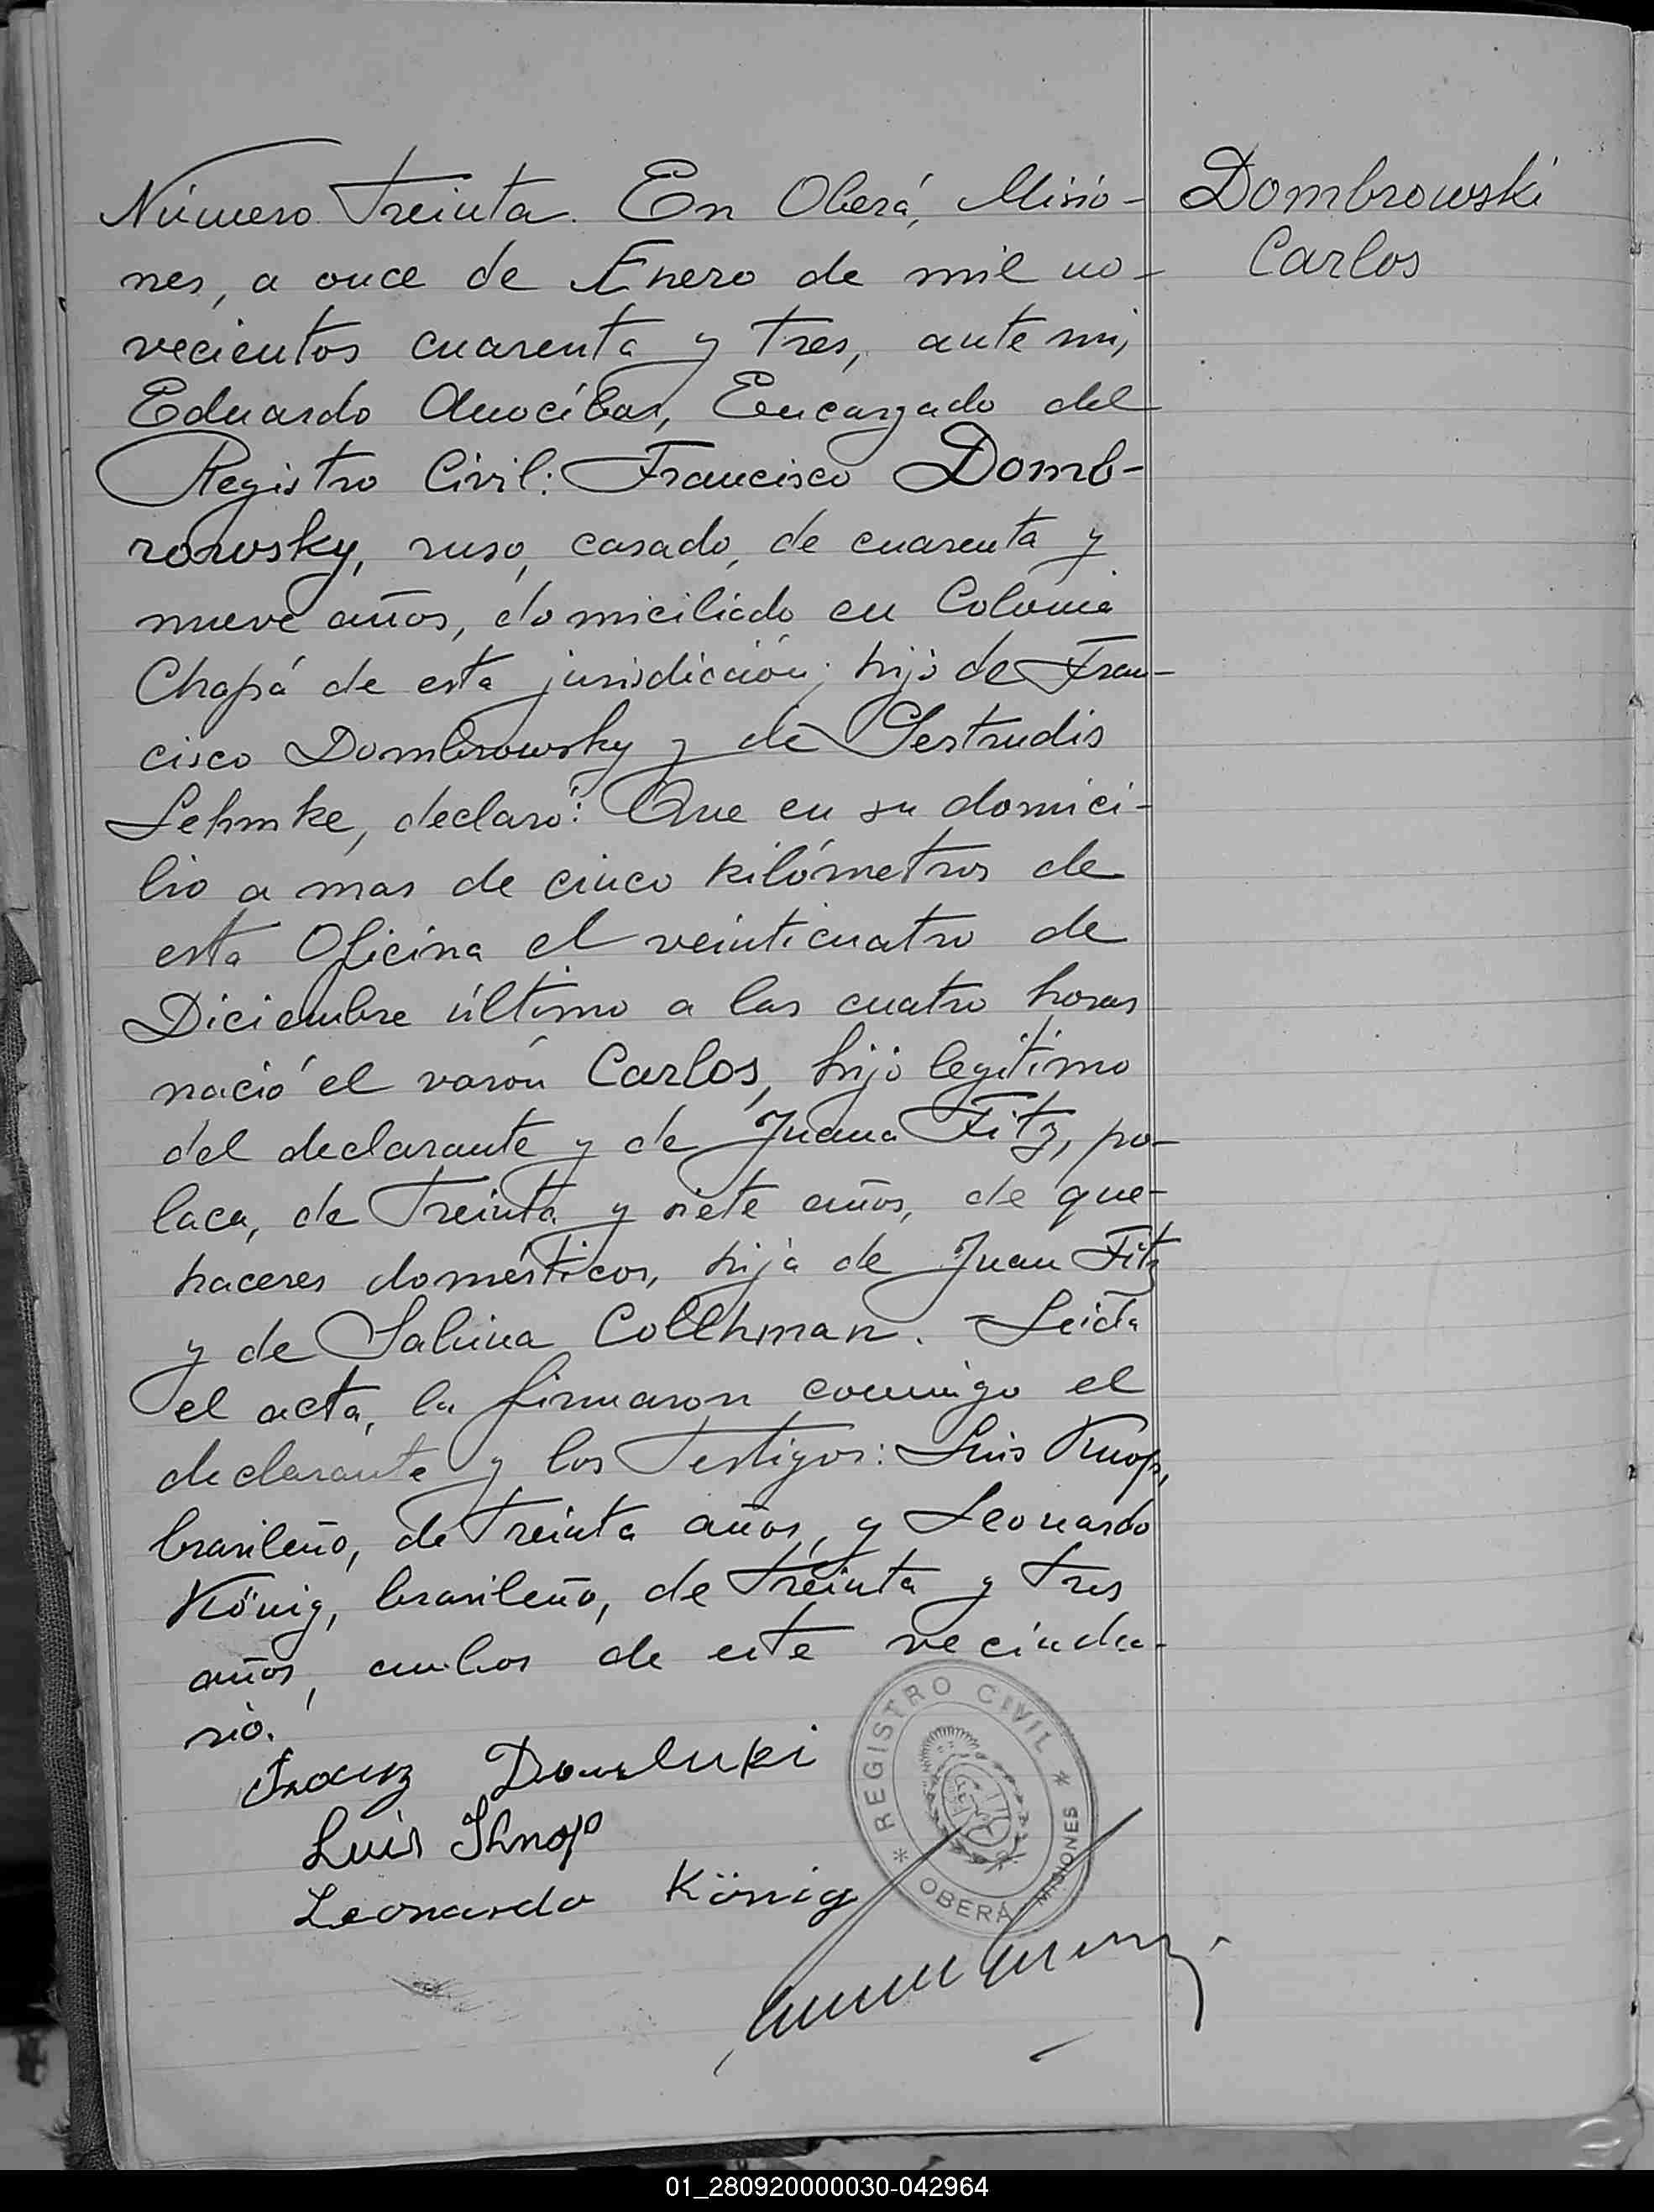 Número Treinta. En Oberá, Misio-
nes, a once de Enero de mil no-
vecientos cuarenta y tres, ante mi,
Eduardo Anocíbar, Encargado del
Registro Civil: Francisco Domb-
rowsky, ruso, casado, de cuarenta y
nueve años, domiciliado en Colonia
Chapá de esta jurisdicción; hijo de Fran-
cisco Dombrowsky y de Gertrudis
Lehmke, declaró: Que en su domici-
lio a mas de cinco kilómetros de
esta Oficina el veinticuatro de
Diciembre último a las cuatro horas
nació el varón Carlos, hijo legítimo
del declarante y de Juana Fitz, po-
laca, de treinta y siete años, de que-
haceres domésticos, hija de Juan Fitz
y de Sabina Collhman. Leida
el acta, la firmaron conmigo el
declarante y los testigos: Luis Knop,
brasileño, de treinta años, y Leonardo
König, brasileño, de treinta y tres
años, ambos de este vecinda-
rio.
Franz
Luis Knop
Leonardo König
Dombrowski
Carlos
REGISTRO CIVIL
OBERÁ MISIONES
01_280920000030-042964